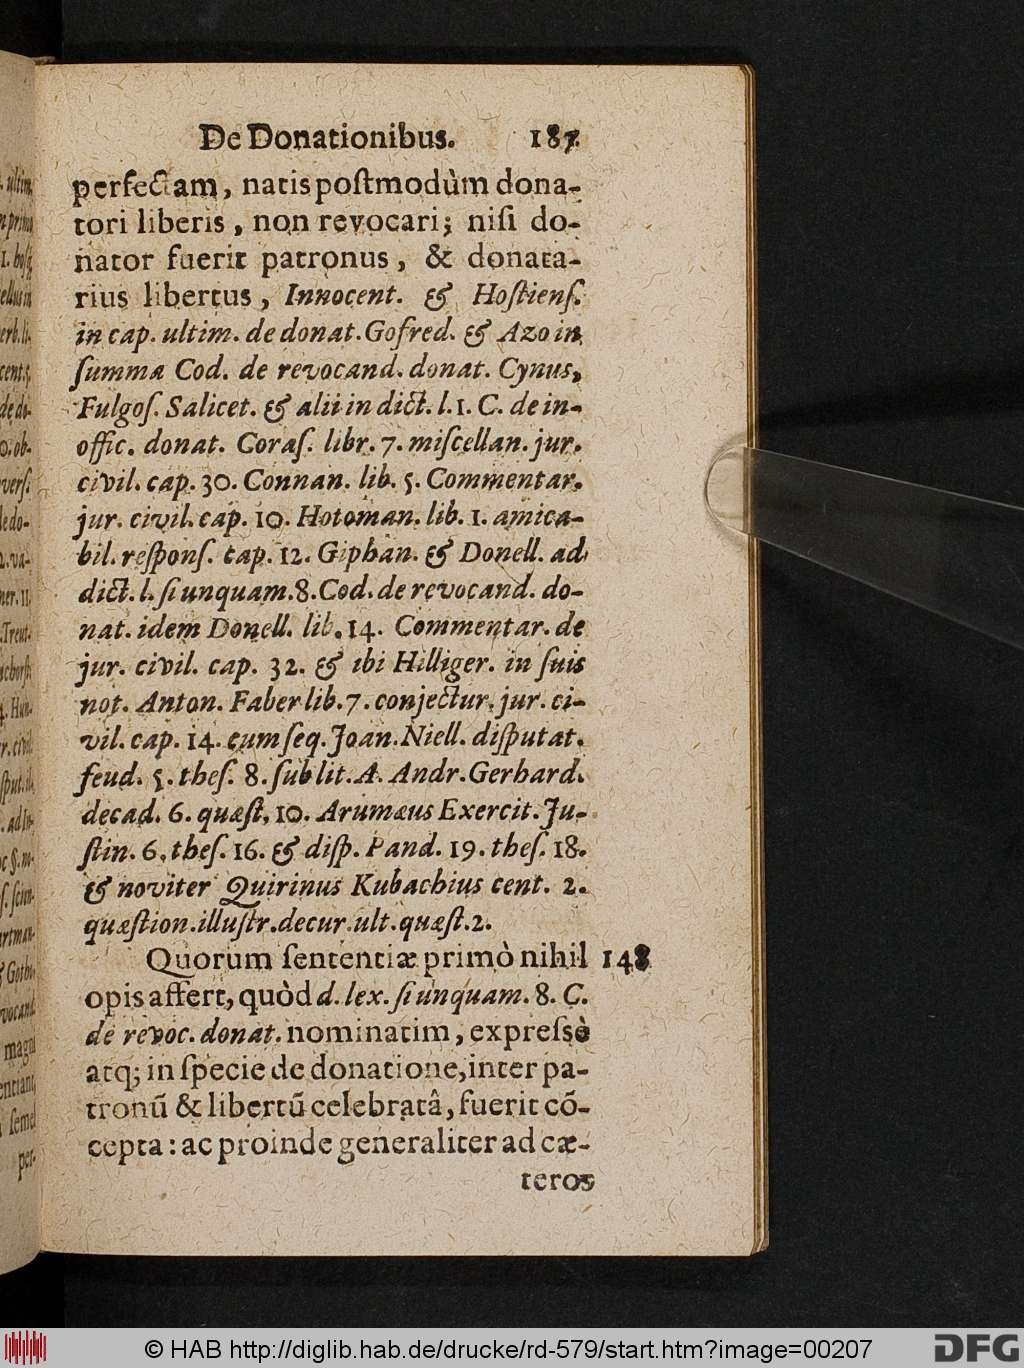 De Donationibus. 187.
perfectam, natis poſtmodùm dona-
tori liberis, non revocari; niſi do-
nator fuerit patronus, & donata-
rius libertus, Innocent. & Hoſtienſ.
in cap. ultim. de donat. Gofred. & Azo in
ſumma Cod. de revocand. donat. Cynus,
Fulgoſ. Salicet. & alii in dict. l. 1. C. de in-
offic. donat. Coraſ. libr. 7. miſcellan. jur.
civil. cap. 30. Connan. lib. 5. Commentar.
jur. civil. cap. 10. Hotoman. lib. 1. amica-
bil. reſponſ. cap. 12. Giphan. & Donell. ad
dict. l. ſi unquam. 8. Cod. de revocand. do-
nat. idem Donell. lib. 14. Commentar. de
jur. civil. cap. 32. & ibi Hilliger. in ſuis
not. Anton. Faber lib. 7. conjectur. jur. ci-
vil. cap. 14. cum ſeq. Joan. Niell. diſputat.
feud. 5. theſ. 8. ſub lit. A. Andr. Gerhard.
decad. 6. quæſt. 10. Arumæus Exercit. Ju-
ſtin. 6. theſ. 16. & diſp. Pand. 19. theſ. 18.
& noviter Quirinus Kubachius cent. 2.
quæſtion. illuſtr. decur. ult. quæſt. 2.
Quorum ſententiæ primò nihil 148
opis affert, quòd d. lex. ſi unquam. 8. C.
de revoc. donat. nominatim, expreſsè
atq; in ſpecie de donatione, inter pa-
tronũ & libertũ celebratâ, fuerit cõ-
cepta: ac proinde generaliter ad cæ-
teros
© HAB http://diglib.hab.de/drucke/rd-579/start.htm?image=00207
DFG